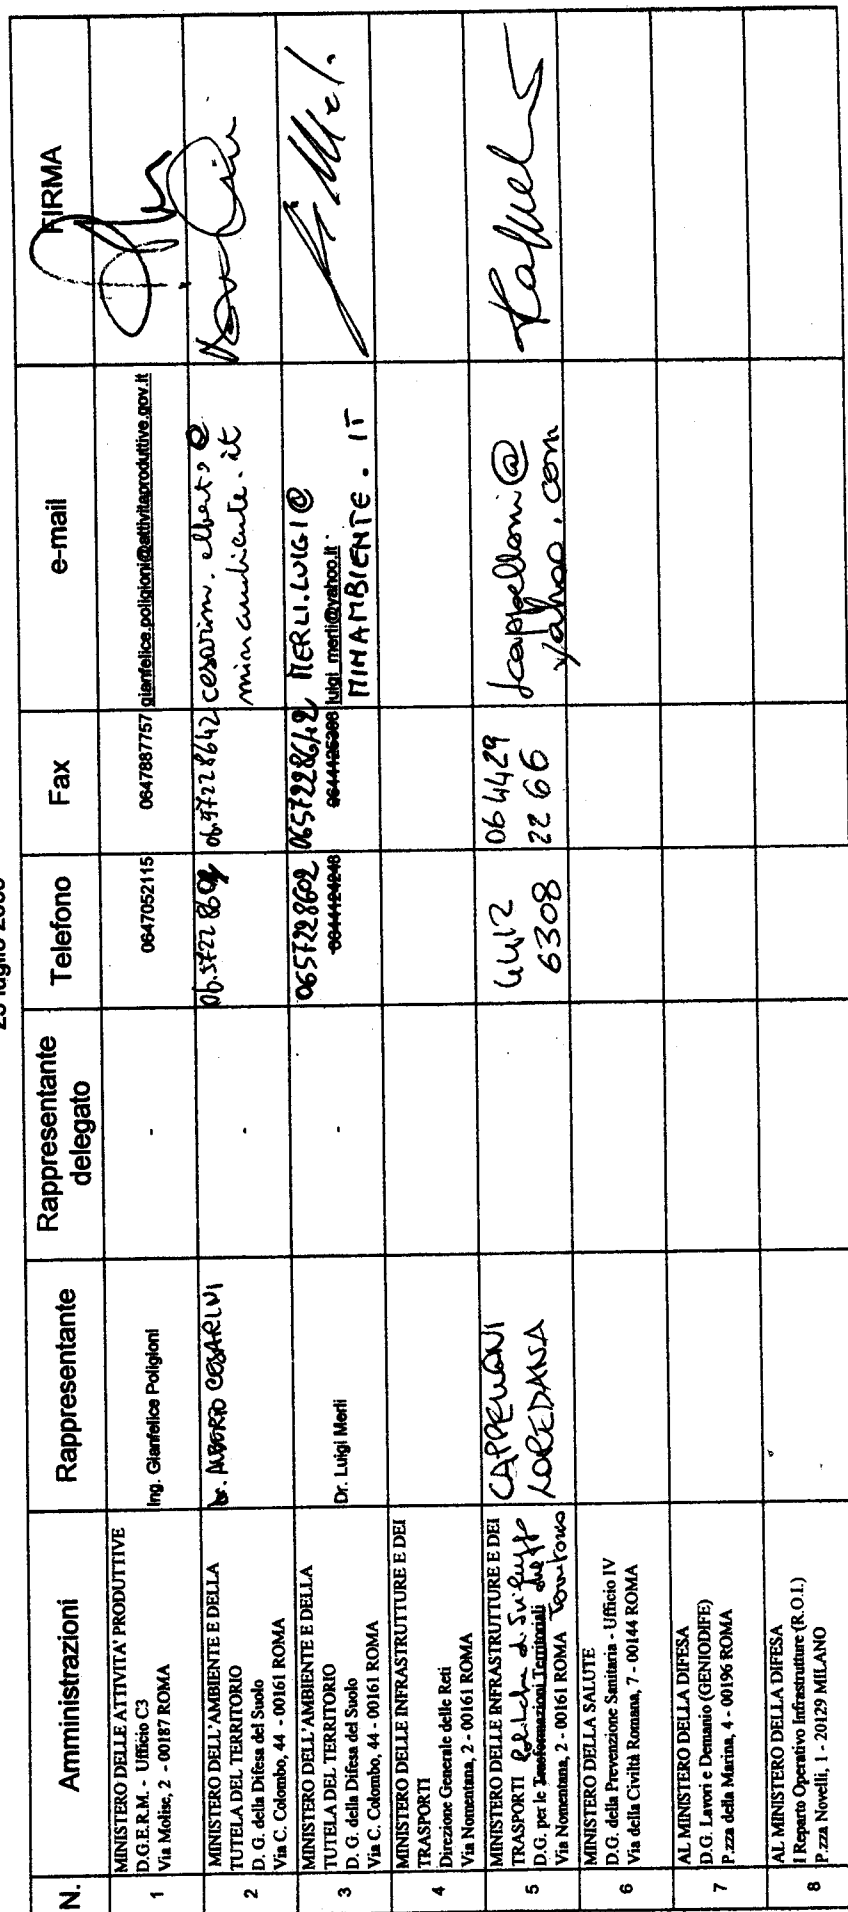 N. Amministrazioni Rappresentante Rappresentante delegato Telefono Fax e-mail FIRMA
1
MINISTERO DELLE ATTIVITA' PRODUTTIVE
D.G.E.R.M. - Ufficio C3
Via Molise, 2 - 00187 ROMA
Ing. Gianfelice Poligioni
-
0647052115
0647887757
gianfelice.poligioni@attivitaproduttive.gov.it
2
MINISTERO DELL'AMBIENTE E DELLA
TUTELA DEL TERRITORIO
D. G. della Difesa del Suolo
Via C. Colombo, 44 - 00161 ROMA
Dr. ALBERTO CESARINI
-
cesarini.alberto@
minambiente.it
3
MINISTERO DELL'AMBIENTE E DELLA
TUTELA DEL TERRITORIO
D. G. della Difesa del Suolo
Via C. Colombo, 44 - 00161 ROMA
Dr. Luigi Merli
-
0657228602
0657228642
MERLI.LUIGI@
luigi_merli@yahoo.it
MINAMBIENTE.IT
4
MINISTERO DELLE INFRASTRUTTURE E DEI
TRASPORTI
Direzione Generale delle Reti
Via Nomentana, 2 - 00161 ROMA
5
MINISTERO DELLE INFRASTRUTTURE E DEI
TRASPORTI Politiche di Sviluppo
D.G. per le Trasformazioni Territoriali del
Via Nomentana, 2 - 00161 ROMA Territorio
CAPPELLONI
LOREDANA
4412
6308
06 4429
2266
lcappelloni@
yahoo.com
6
MINISTERO DELLA SALUTE
D.G. della Prevenzione Sanitaria - Ufficio IV
Via della Civiltà Romana, 7 - 00144 ROMA
7
AL MINISTERO DELLA DIFESA
D.G. Lavori e Demanio (GENIODIFE)
P.zza della Marina, 4 - 00196 ROMA
8
AL MINISTERO DELLA DIFESA
I Reparto Operativo Infrastrutture (R.O.I.)
P.zza Novelli, 1 - 20129 MILANO